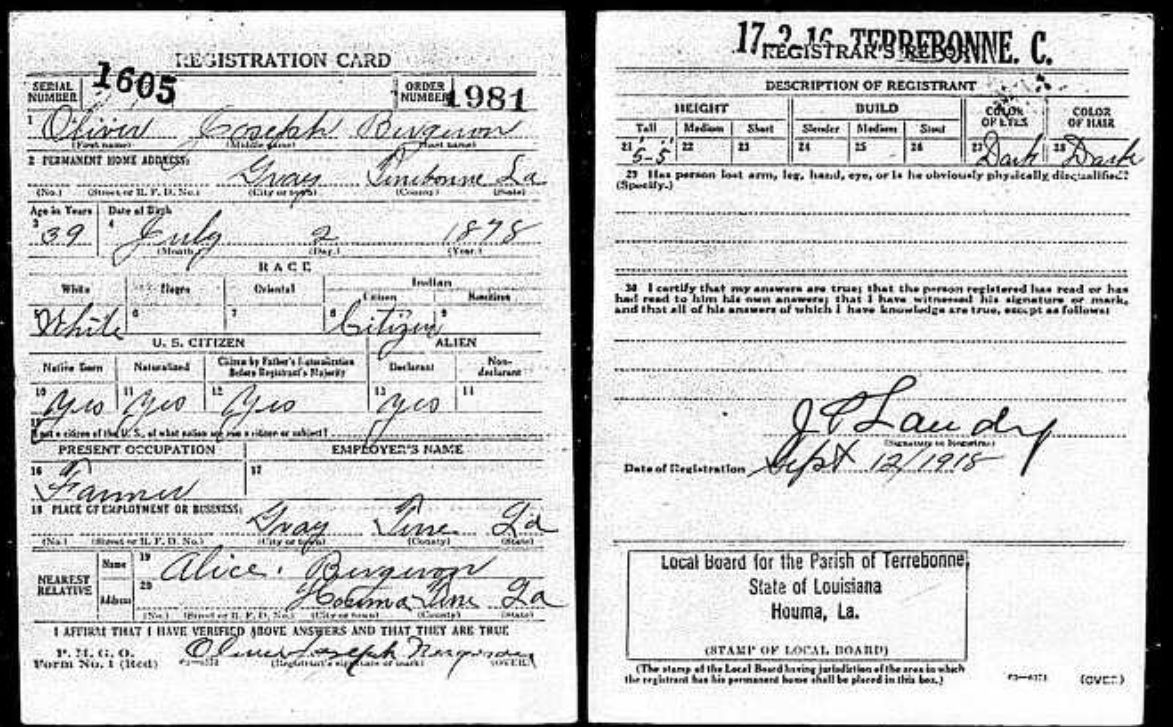 REGISTRATION CARD
SERIAL NUMBER 1605 ORDER NUMBER 1981
1 Oliver Joseph Bergeron
(First name) (Middle name) (Last name)
2 PERMANENT HOME ADDRESS:
Gray Terrebonne La
(No.) (Street or R. F. D. No.) (City or town) (County) (State)
Age in Years Date of Birth
3 39 4 July 2 1878
(Month.) (Day.) (Year.)
RACE
White Negro Oriental Indian
Citizen Noncitizen
5 White 6 7 8 Citizen 9
U. S. CITIZEN ALIEN
Native Born Naturalized Citizen by Father's Naturalization Before Registrant's Majority Declarant Non-declarant
10 Yes 11 Yes 12 Yes 13 Yes 14
15 If not a citizen of the U. S., of what nation are you a citizen or subject?
PRESENT OCCUPATION EMPLOYER'S NAME
16 Farmer 17
18 PLACE OF EMPLOYMENT OR BUSINESS:
Gray Terre La
(No.) (Street or R. F. D. No.) (City or town) (County) (State)
NEAREST RELATIVE Name 19 Alice Bergeron
Address 20 Houma Terre La
(No.) (Street or R. F. D. No.) (City or town) (County) (State)
I AFFIRM THAT I HAVE VERIFIED ABOVE ANSWERS AND THAT THEY ARE TRUE
P. M. G. O.
Form No. 1 (Red) Oliver Joseph Bergeron
(Registrant's signature or mark) (OVER)
17-2-16 TERREBONNE. C.
REGISTRAR'S REPORT
DESCRIPTION OF REGISTRANT
HEIGHT BUILD COLOR OF EYES COLOR OF HAIR
Tall Medium Short Slender Medium Stout
21 5-5 22 23 24 25 26 27 Dark 28 Dark
29 Has person lost arm, leg, hand, eye, or is he obviously physically disqualified?
(Specify.)
30 I certify that my answers are true; that the person registered has read or has
had read to him his own answers; that I have witnessed his signature or mark,
and that all of his answers of which I have knowledge are true, except as follows:
Landry
(Signature of Registrar)
Date of Registration Sept 12/1918
Local Board for the Parish of Terrebonne,
State of Louisiana
Houma, La.
(STAMP OF LOCAL BOARD)
(The stamp of the Local Board having jurisdiction of the area in which
the registrant has his permanent home shall be placed in this box.)
(OVER)